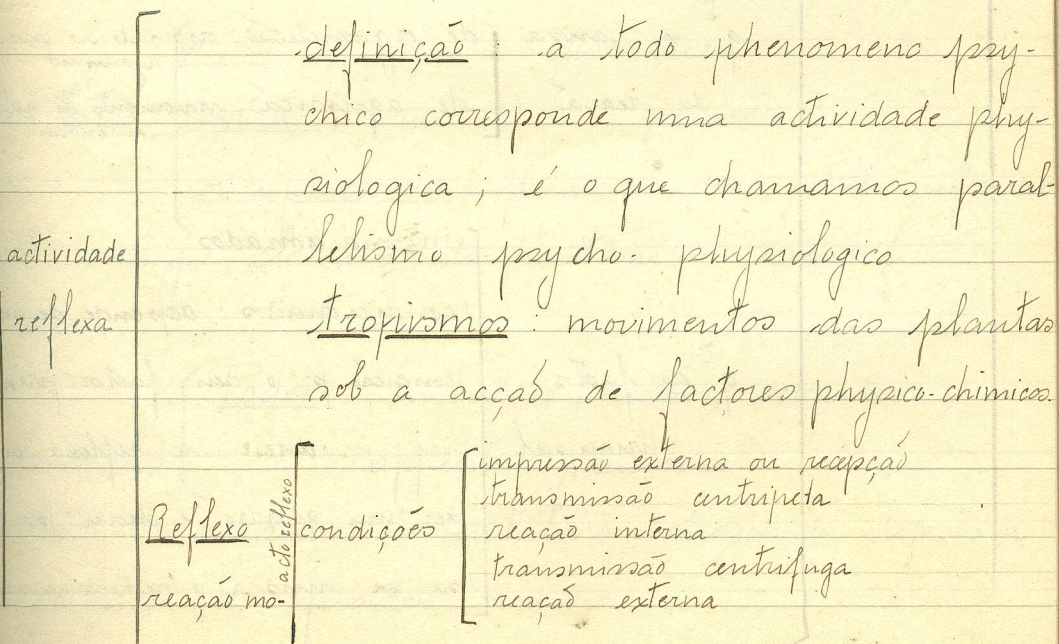 definição : a todo phenomeno psy-
chico corresponde uma actividade phy-
siologica ; é o que chamamos paral-
lelismo psycho-physiologico
actividade
reflexa
tropismos : movimentos das plantas
sob a acção de factores physico-chimicos.
Reflexo
reação mo-
acto reflexo
condições
impressão externa ou recepção
transmissão centripeta
reação interna
transmissão centrifuga
reação externa